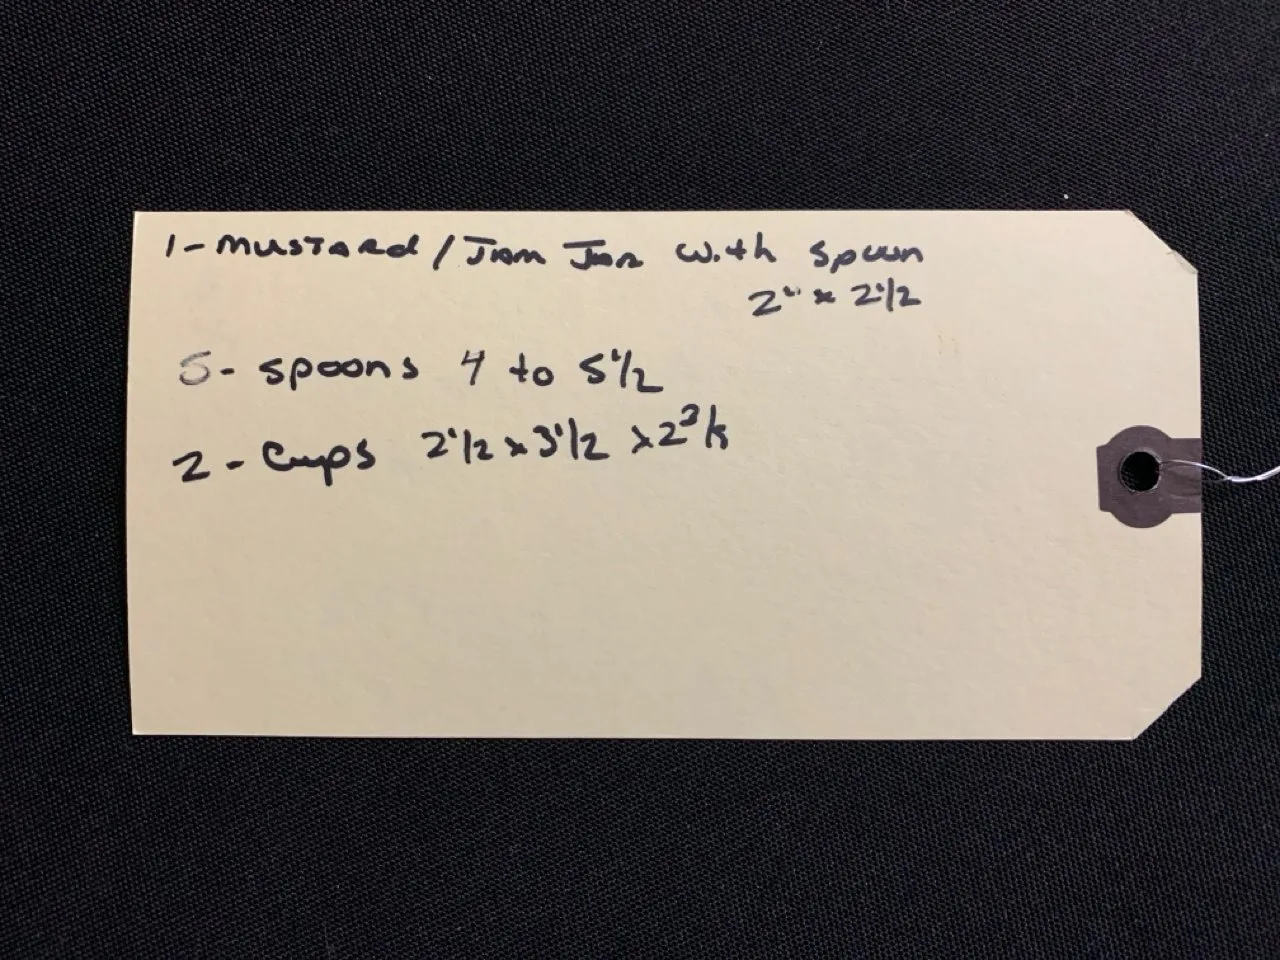 1-MUSTARd / Jam Jar with spoon
2" x 2 1/2
5- spoons 4 to 5 1/2
2 - Cups 2 1/2 x 3 1/2 x 2 3/8